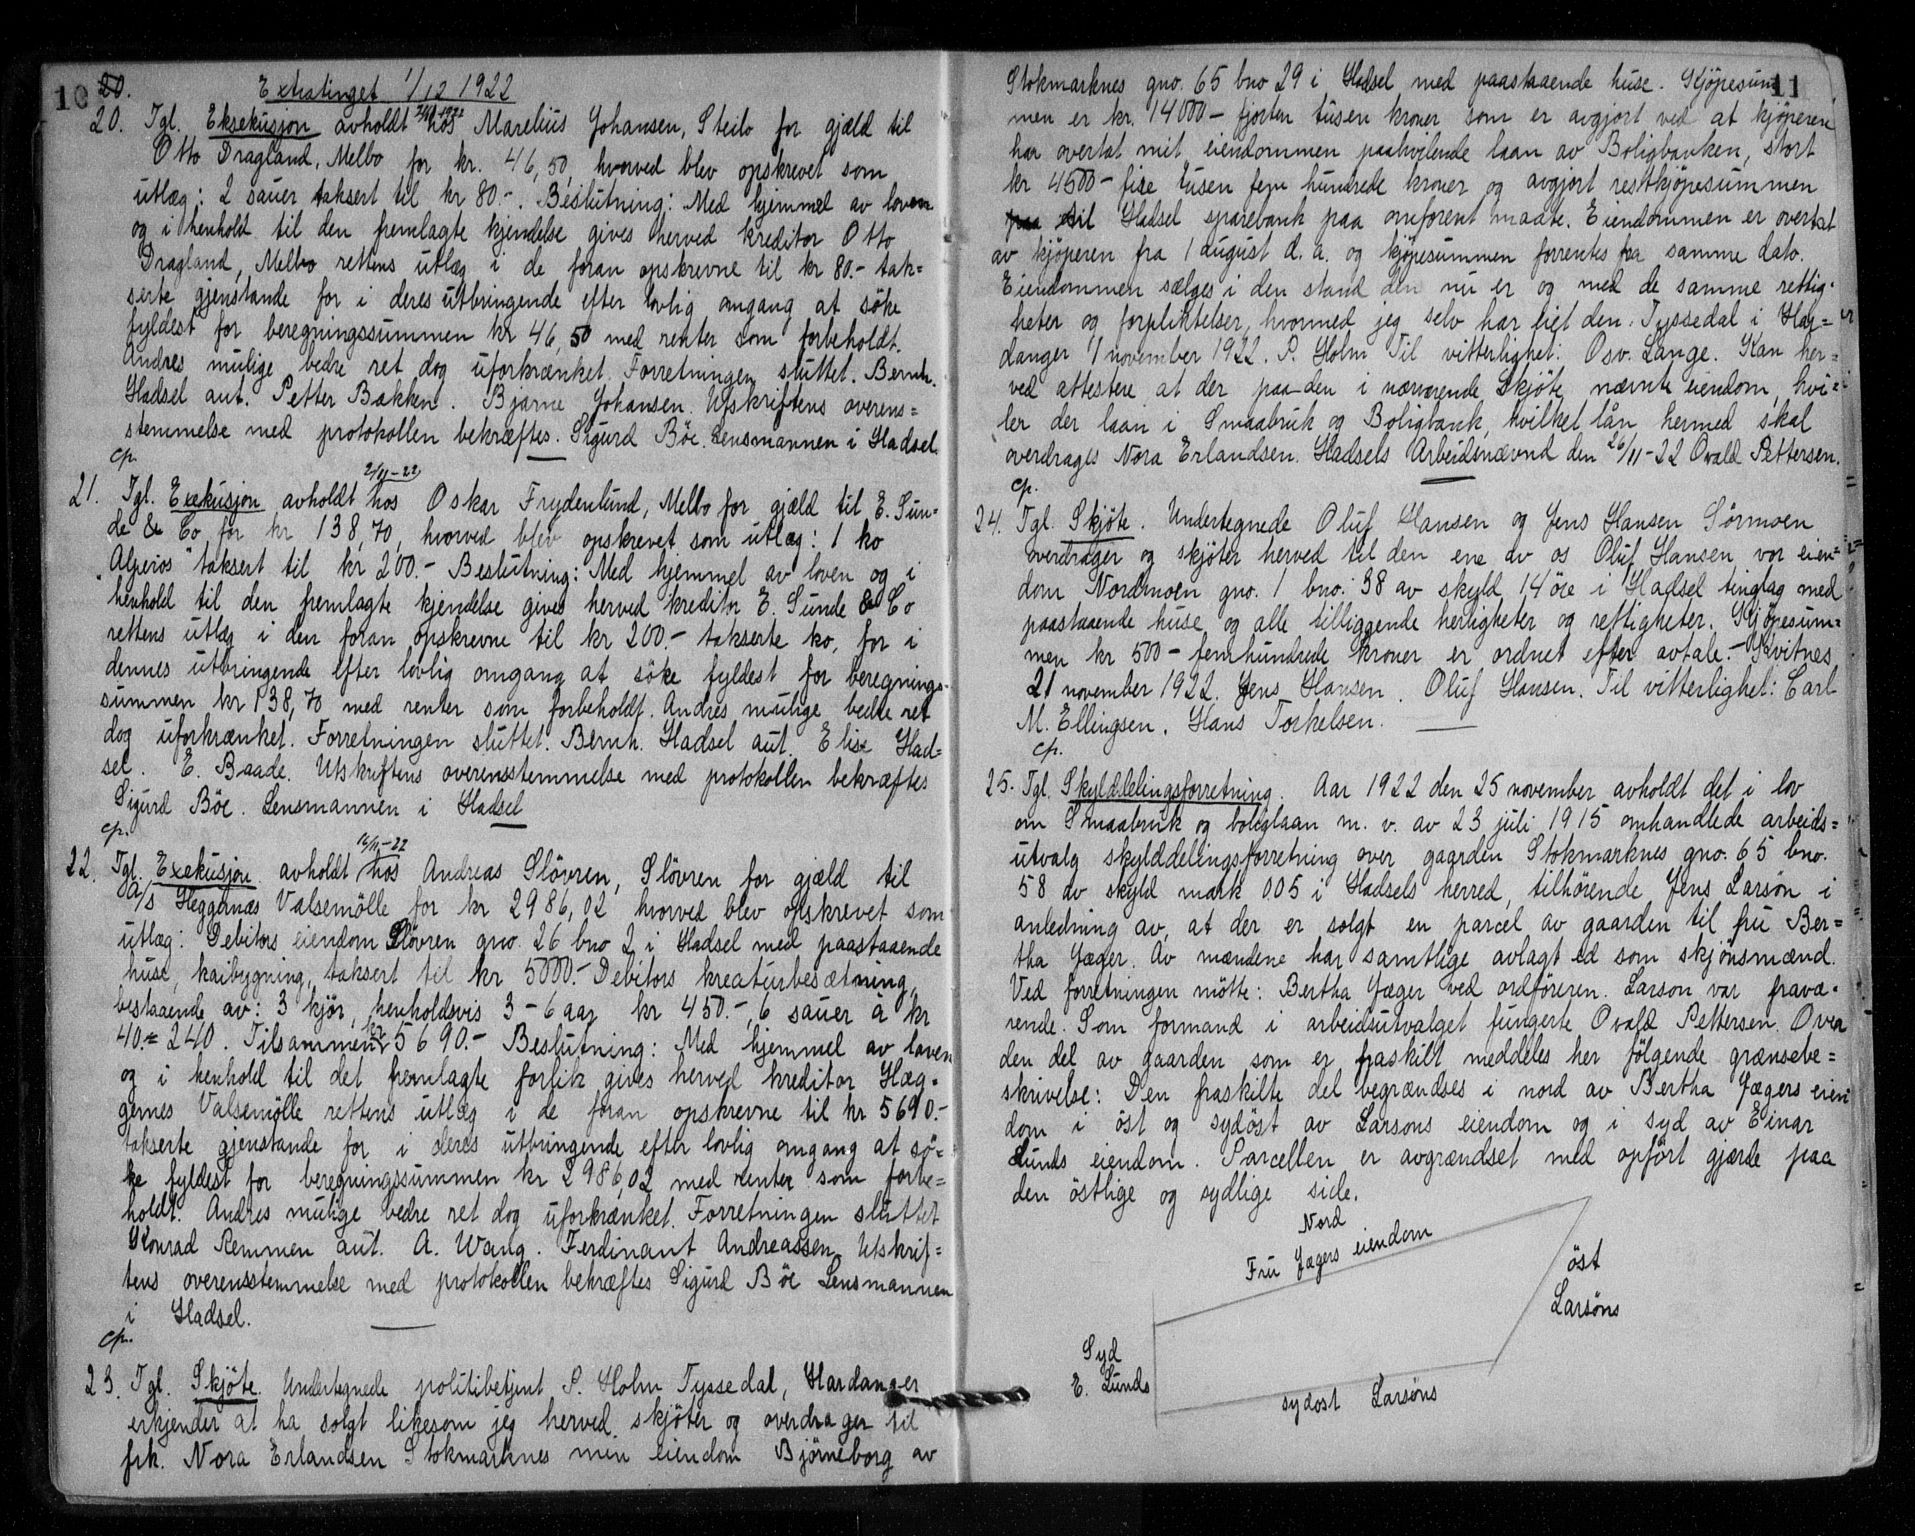 10 20. Extratinget 1/12 1922
20. Tgl. Eksekusjon avholdt hos Marelius Johansen, Steilo for gjæld til
Otto Dragland, Melbo for kr. 46,50, hvorved blev opskrevet som
utlæg: 2 sauer taksert til kr 80.-. Beslutning: Med hjemmel av loven
og i henhold til den fremlagte kjendelse gives herved kreditor Otto
Dragland, Melbo rettens utlæg i de foran opskrevne til kr 80.- tak=
serte gjenstande for i deres utbringende efter lovlig omgang at söke
fyldest for beregningssummen kr 46,50 med renter som forbeholdt.
Andres mulige bedre ret dog uforkrænket. Forretningen sluttet. Bernh.
Hadsel aut. Petter Bakken. Bjarne Johansen. Utskriftens overens=
stemmelse med protokollen bekræftes. Sigurd Böe. Lensmannen i Hadsel.
cp. 2/11-22
21. Tgl. Exekusjon avholdt hos Oskar Frydenlund, Melbo for gjæld til E. Sun-
de & Co for kr 138,70, hvorved blev opskrevet som utlæg: 1 ko
"Alperos" taksert til kr 200.- Beslutning: Med hjemmel av loven og i
henhold til den fremlagte kjendelse gives herved kreditor E. Sunde & Co
rettens utlæg i den foran opskrevne til kr 200.- takserte ko, for i
dennes utbringende efter lovlig omgang at söke fyldest for beregnings-
summen kr 138,70 med renter som forbeholdt. Andres mulige bedre ret
dog uforkrænket. Forretningen sluttet. Bernh. Hadsel aut. Elise Had=
sel. E. Baade. Utskriftens overensstemmelse med protokollen bekræftes
Sigurd Böe. Lensmannen i Hadsel
cp. 16/11-22
22. Tgl. Exekusjon avholdt hos Andreas Slövren, Slövren for gjæld til
A/s Heggenæs Valsemölle for kr 2986,02 hvorved blev opskrevet som
utlæg: Debitors eiendom Slövren gno. 26 bno 2 i Hadsel med paastaaende
huse, kaibygning, taksert til kr 5000.- Debitors kreaturbesætning,
bestaaende av: 3 kjör, henholdsvis 3-6 aar kr 450.-, 6 sauer à kr
40.= 240. Tilsammen kr 5690.- Beslutning: Med hjemmel av loven
og i henhold til det fremlagte forlik gives herved kreditor Hæg-
genes Valsemölle rettens utlæg i de foran opskrevne til kr 5690.-
takserte gjenstande for i deres utbringende efter lovlig omgang at sö=
ke fyldest for beregningssummen kr 2986,02 med renter som forbe=
holdt. Andres mulige bedre ret dog uforkrænket. Forretningen sluttet
Konrad Remmen aut. A. Wang. Ferdinant Andreassen. Utskrif=
tens overensstemmelse med protokollen bekræftes Sigurd Böe Lensmannen
i Hadsel.
cp.
23. Tgl. Skjöte. Undertegnede politibetjent P. Holm Tyssedal, Hardanger
erkjender at ha solgt likesom jeg herved skjöter og overdrager til
frk. Nora Erlandsen Stokmarknes min eiendom Bjørneborg av
11
Stokmarknes gno. 65 bno 29 i Hadsel med paastaaende huse. Kjöpesum
men er kr. 14000- fjorten tusen kroner som er avgjort ved at kjöperen
har overtat mit eiendommen paahvilende laan av Boligbanken, stort
kr 4500- fire tusen fem hundrede kroner og avgjort restkjöpesummen
paa til Hadsel sparebank paa omforent maate. Eiendommen er overtat
av kjöperen fra 1 august d. a. og kjöpesummen forrentes fra samme dato.
Eiendommen sælges i den stand den nu er og med de samme rettig-
heter og forpliktelser, hvormed jeg selv har eiet den. Tyssedal i Har=
danger 1 november 1922. P. Holm Til vitterlighet: Osv. Lange. Kan her=
ved attestere at der paa den i nærværende skjöte nævnte eiendom, hvi=
ler der laan i Smaabruk og Boligbank, hvilket lån hermed skal
overdrages Nora Erlandsen. Hadsels Arbeidsnævnd den 26/11-22 Ovald Pettersen.
cp.
24. Tgl. Skjöte. Undertegnede Oluf Hansen og Jens Hansen Sörmoen
overdrager og skjöter herved til den ene av os Oluf Hansen vor eien=
dom Nordmoen gno. 1 bno: 38 av skyld 14 öre i Hadsel tinglag med
paastaaende huse og alle tilliggende herligheter og rettigheter. Kjöpesum=
men kr 500- femhundrede kroner er ordnet efter avtale.- Kvitnes
21 november 1922. Jens Hansen. Oluf Hansen. Til vitterlighet: Carl
M. Ellingsen. Hans Torkelsen.
cp.
25. Tgl. Skylddelingsforretning. Aar 1922 den 25 november avholdt det i lov
om Smaabruk og boliglaan m. v. av 23 juli 1915 omhandlede arbeids=
utvalg skylddelingsforretning over gaarden Stokmarknes gno. 65 bno.
58 av skyld mark 0.05 i Hadsels herred, tilhörende Jens Larsøn i
anledning av, at der er solgt en parcel av gaarden til fru Ber=
tha Jæger. Av mændene har samtlige avlagt ed som skjönsmænd.
Ved forretningen mötte: Bertha Jæger ved ordföreren. Larson var fravæ-
rende. Som formand i arbeidsutvalget fungerte Ovald Pettersen. Over
den del av gaarden som er fraskilt meddeles her fölgende grænsebe=
skrivelse: Den fraskilte del begrændses i nord av Bertha Jægers eien
dom i öst og sydöst av Larsons eiendom og i syd av Einar
Lunds eiendom. Parcellen er avgrændset med opfört gjerde paa
den östlige og sydlige side.
Nord
Fru Jægers eiendom
öst
Larsöns
Syd
E. Lunds
sydost Larsöns